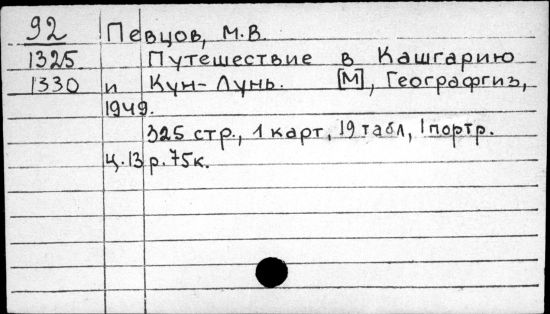 92 Певцов, М.В.
1325 Путешествие в Кашгарию
1330 и Кун-Лунь. [М], Географгиз,
1949.
325 стр., 1 карт, 19 табл, 1 портр.
Ц. 13 р. 75к.